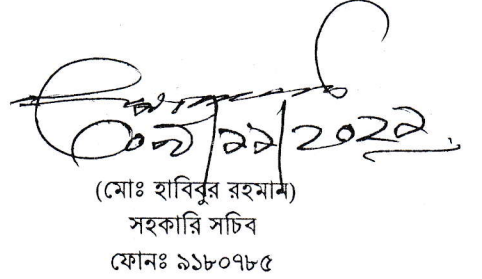 ০৯/১১/২০২২
(মোঃ হাবিবুর রহমান)
সহকারি সচিব
ফোনঃ ৯১৮০৭৮৫